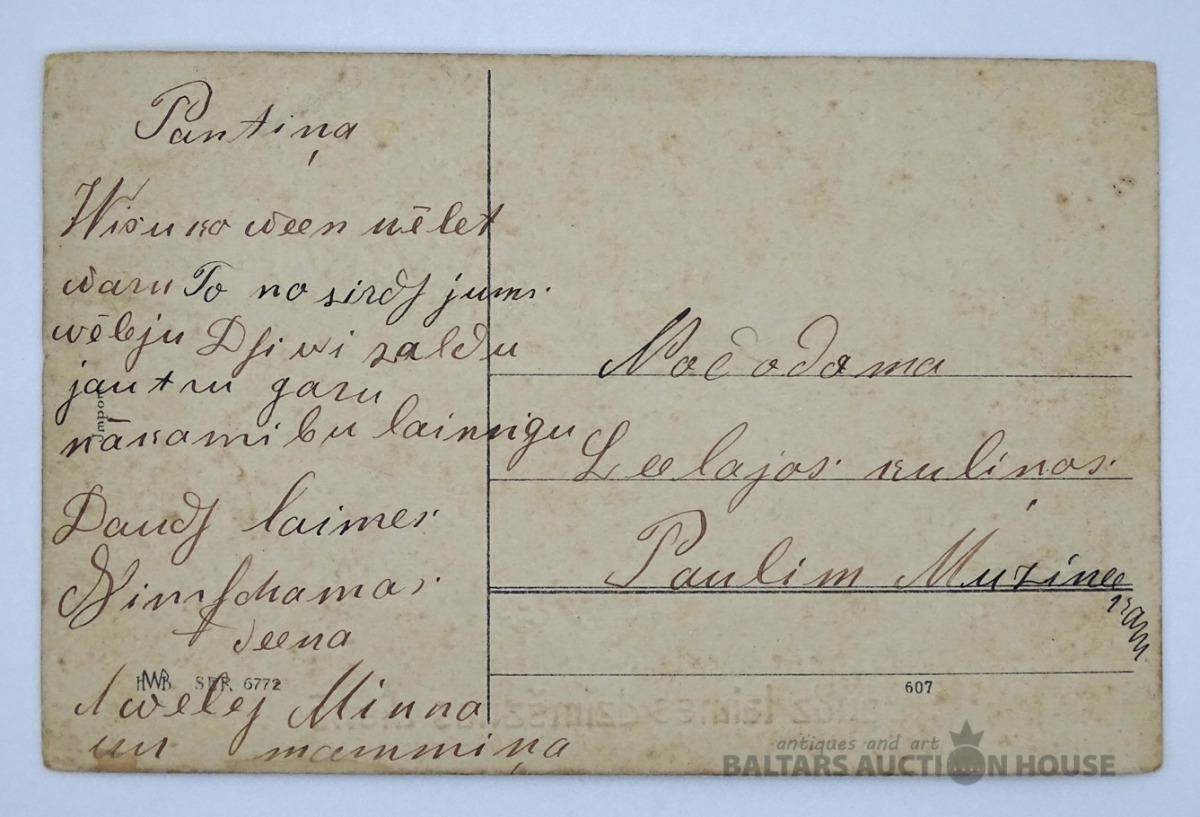 Pantiņa
Wisu ko ween wēlet
waru To no sirds jums
wēleju Dsiwi saldu
jautru garu
nākamību laimigu
Daudſ laimes
Dimſchamas
deena
wēlej Minna
un mammiņa
HWB SER. 6772
Nočodama
Leelajos kulinos
Paulim Muzinee
kam
607
antiques and art
BALTARS AUCTION HOUSE